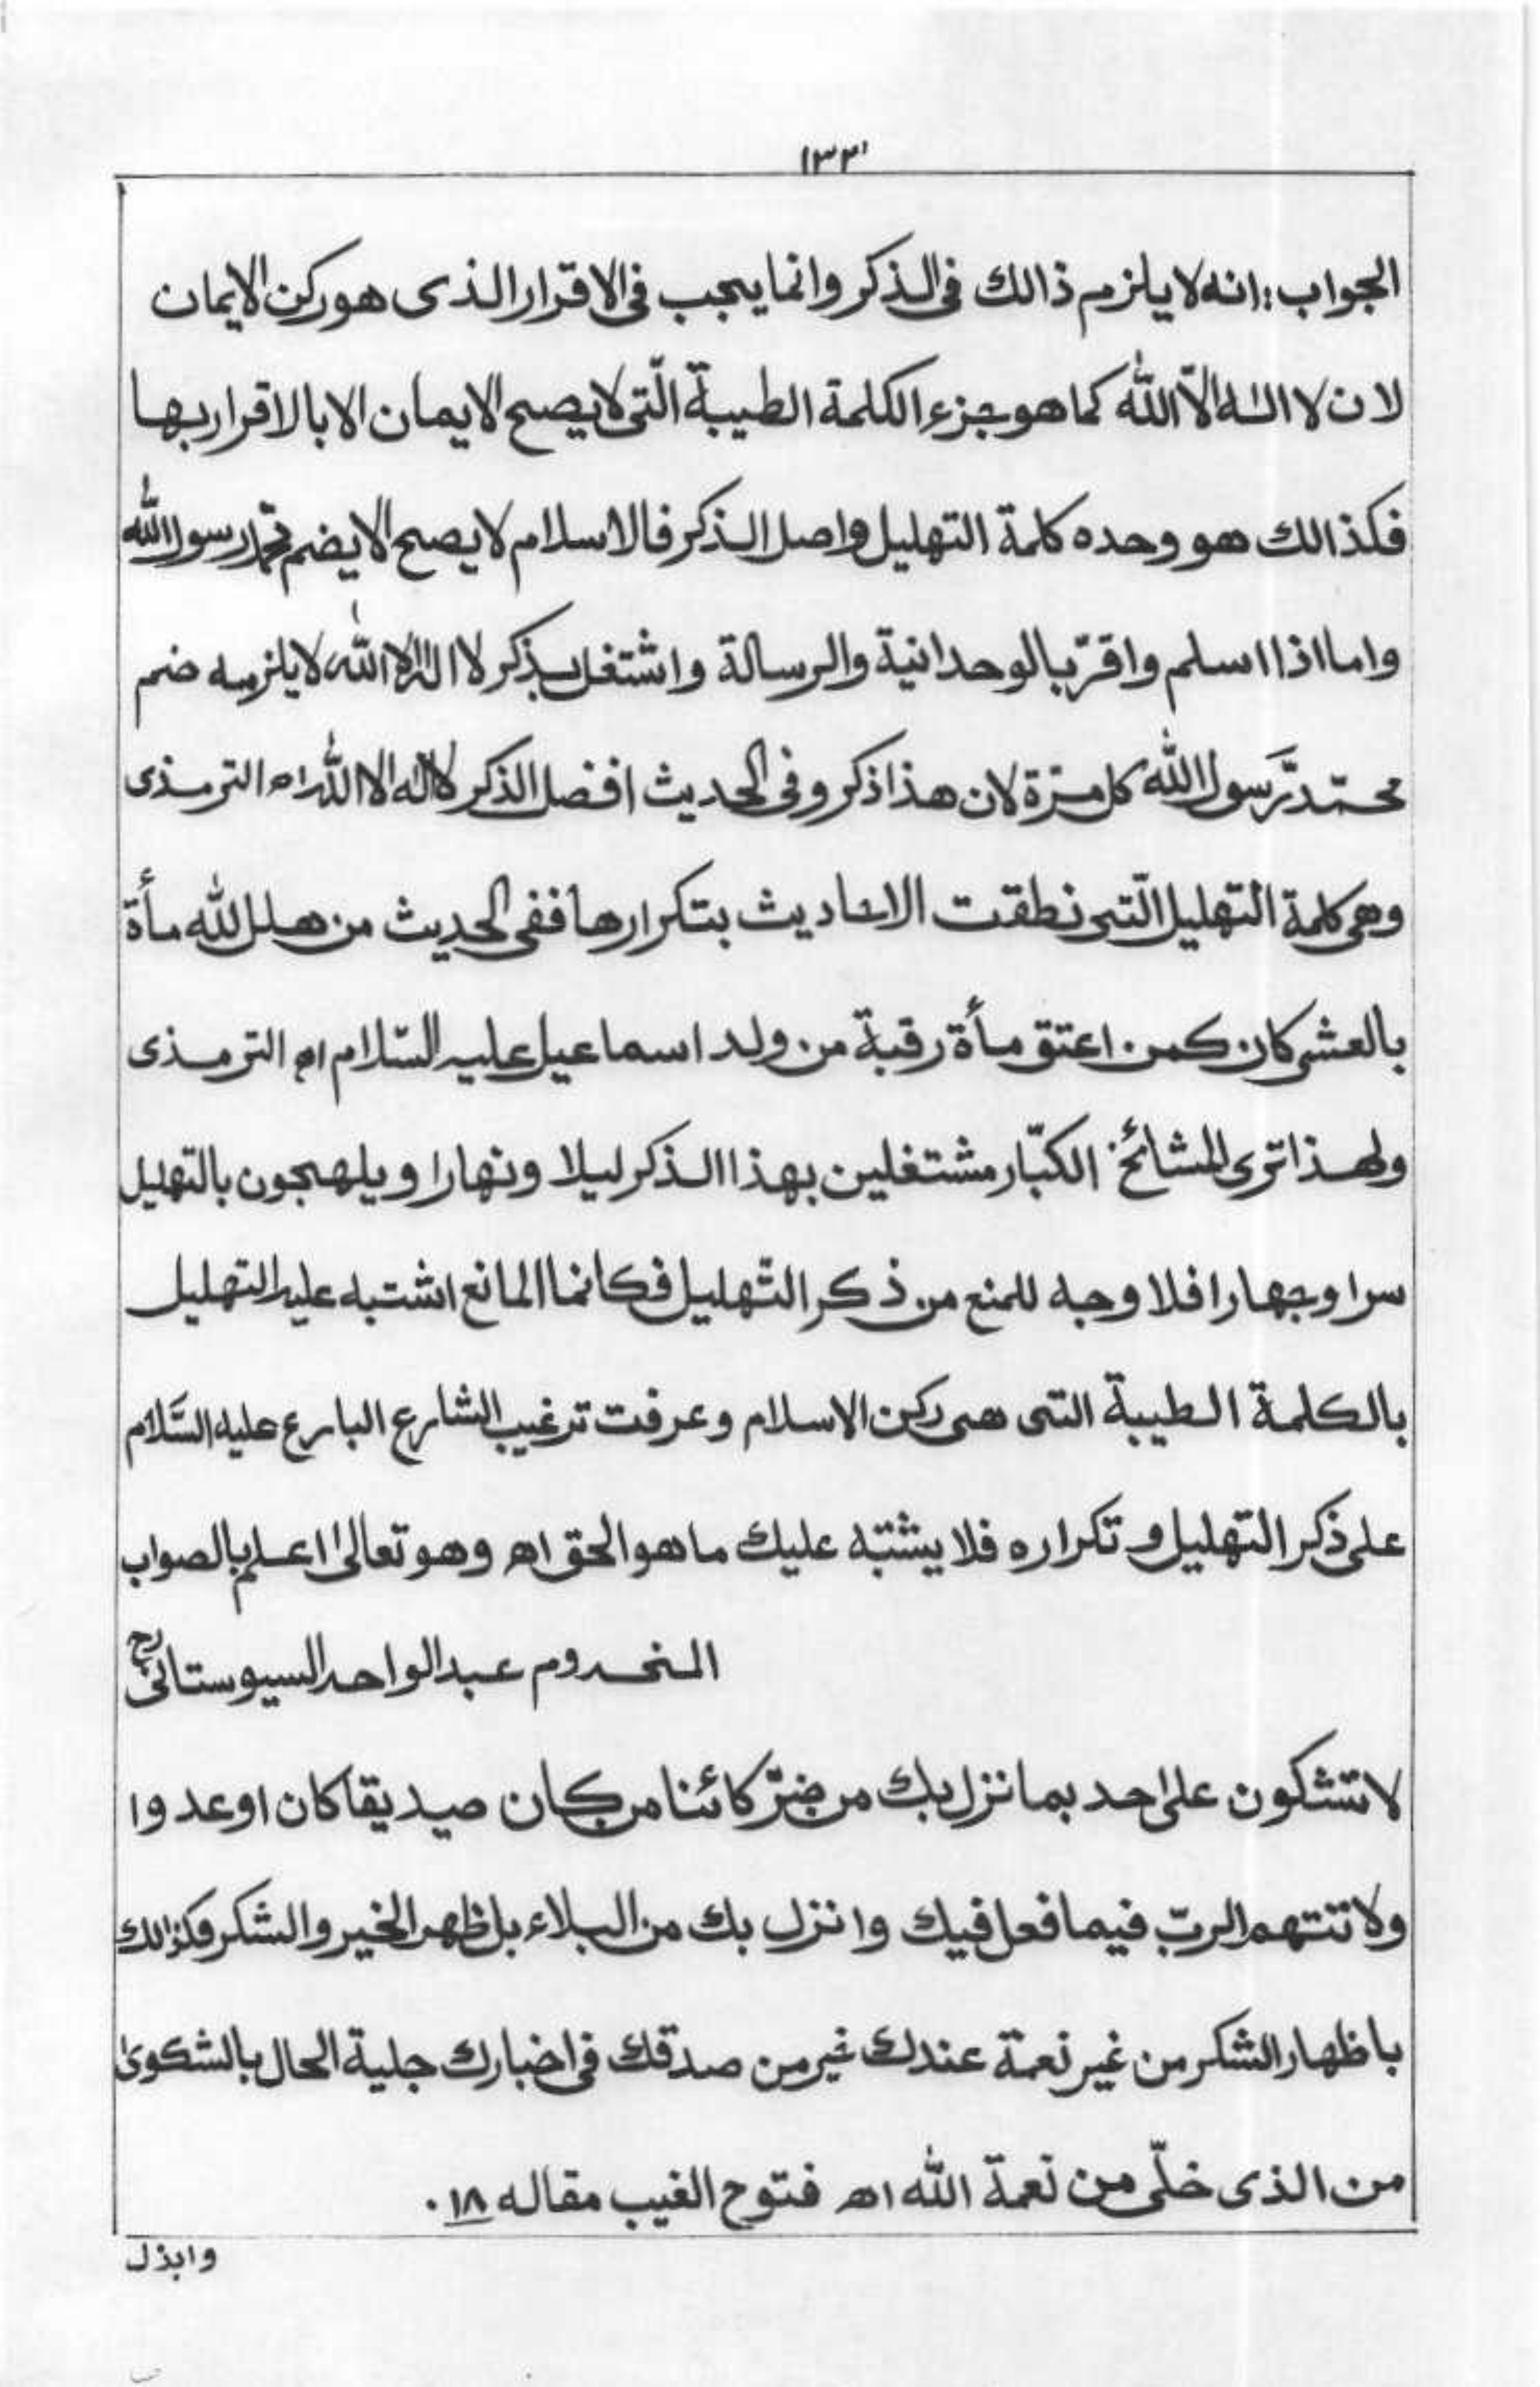 ١٣٣
الجواب: انه لا يلزم ذالك فى الذكر وانما يجب فى الاقرار الذى هو ركن الايمان
لان لا اله الّا اللّٰه كما هو جزء الكلمة الطيبة الّتى لا يصح الايمان الا بالاقرار بها
فكذالك هو وحده كلمة التهليل واصل الذكر فالاسلام لا يصح الا يضم محمد رسول اللّٰه
واما اذا اسلم واقرّ بالوحدانية والرسالة واشتغل بذكر لا اله الا اللّٰه لا يلزمه ضم
محمّد رَّسول اللّٰه كل مرّة لان هذا ذكر وفى الحديث افضل الذكر لا اله الا اللّٰه اه الترمذى
وهى كلمة التهليل الّتى نطقت الاحاديث بتكرارها ففى الحديث من هلل للّٰه مأة
بالعشى كان كمن اعتق مأة رقبة من ولد اسماعيل عليه السّلام اه الترمذى
ولهذا ترى المشائخ الكبّار مشتغلين بهذا الذكر ليلا ونهارا ويلهجون بالتهليل
سرا وجهارا فلا وجه للمنع من ذكر التّهليل فكانما المانع اشتبه عليه التهليل
بالكلمة الطيبة التى هى ركن الاسلام وعرفت ترغيب الشارع البارع عليه السَّلام
على ذكر التهليل و تكراره فلا يشتبه عليك ما هو الحق اه وهو تعالىٰ اعلم بالصواب
المخدوم عبد الواحد السيوستانى رح
لا تشكون على احد بما نزل بك من ضرّ كائنا من كان صديقا كان او عدوا
ولا تتهم الربّ فيما فعل فيك وانزل بك من البلاء بل اظهر الخير والشكر فكذالك
باظهار الشكر من غير نعمة عندك خير من صدقك فى اخبارك جلية الحال بالشكوىٰ
من الذى خلّى من نعمة اللّٰه اه فتوح الغيب مقاله ١٨.
وابذل